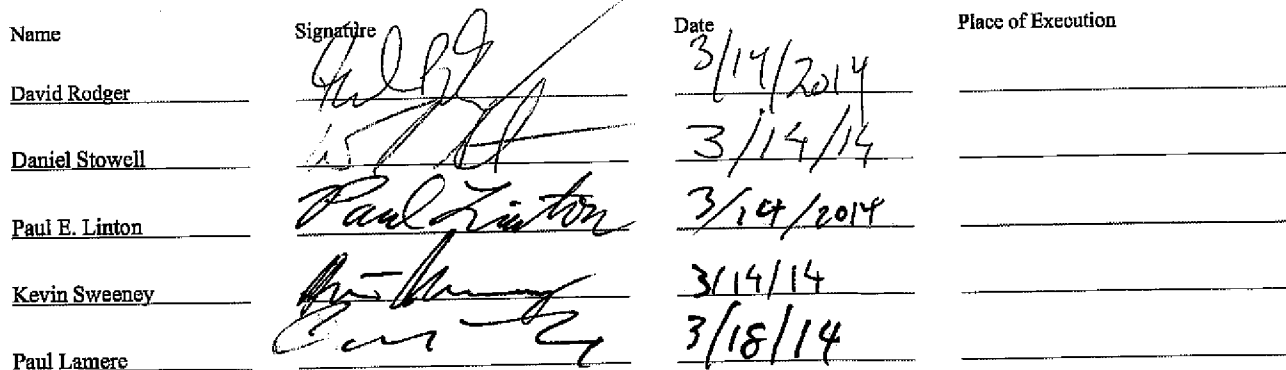 Name Signature Date Place of Execution
David Rodger 3/14/2014
Daniel Stowell 3/14/14
Paul E. Linton Paul Linton 3/14/2014
Kevin Sweeney 3/14/14
Paul Lamere 3/18/14